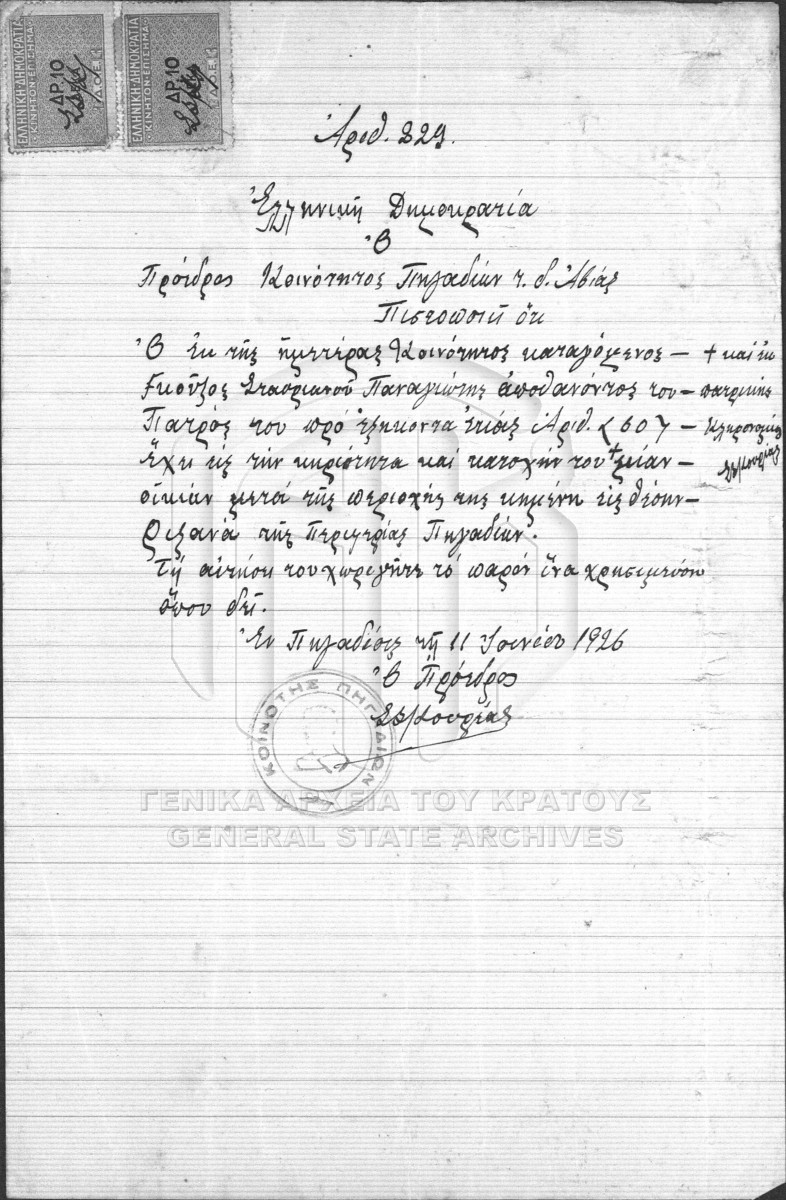 ΕΛΛΗΝΙΚΗ·ΔΗΜΟΚΡΑΤΙΑ
ΚΙΝΗΤΟΝ·ΕΠΙΣΗΜΑ
ΔΡ.10
ΕΛΛΗΝΙΚΗ·ΔΗΜΟΚΡΑΤΙΑ
ΚΙΝΗΤΟΝ·ΕΠΙΣΗΜΑ
ΔΡ.10
Ἀριθ. 229.
Ἑλληνική Δημοκρατία
Ὁ
Πρόεδρος Κοινότητος Πηγαδίων τ. δ. Ἀβίας
Πιστοποιεῖ ὅτι
Ὁ ἐκ τῆς ἡμετέρας Κοινότητος καταγόμενος –
Σκοῦζος Σταυριανοῦ Παναγιώτης ἀποθανόντος του –
Πατρός του πρό ἑξήκοντα ἐτίας Ἀριθ. (60) –
ἔχει εἰς τήν κηριότητα και κατοχήν του + μίαν –
οἰκίαν μετά τῆς περιοχῆς της κημένη εἰς θέσιν –
τῆς Περιφερίας Πηγαδίων.
Τῇ αἰτήσει του χωριγῆτε τό παρόν ἵνα χρησιμεύση
ὅπου δεῖ.
+ και ἐκ
πατρικῆς
κληρονομίας
Ἐν Πηγαδίοις τῇ 11 Ἰουνίου 1926
Ὁ Πρόεδρος
ΚΟΙΝΟΤΗΣ ΠΗΓΑΔΙΩΝ
ΓΕΝΙΚΑ ΑΡΧΕΙΑ ΤΟΥ ΚΡΑΤΟΥΣ
GENERAL STATE ARCHIVES